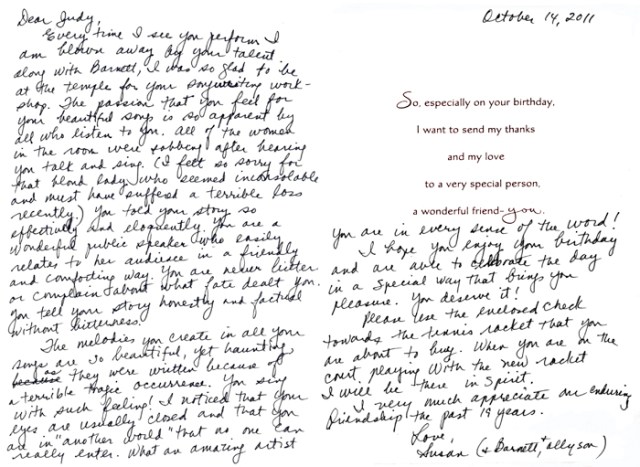 Dear Judy,
Every time I see you perform I
am blown away by your talent
along with Barnett, I was so glad to be
at the temple for your songwriting work-
shop. The passion that you feel for
your beautiful songs is so apparent by
all who listen to you. All of the women
in the room were sobbing after hearing
you talk and sing. (I felt so sorry for
that blond lady who seemed inconsolable
and must have suffered a terrible loss
recently.) You told your story so
effectively and eloquently. You are a
wonderful public speaker who easily
relates to her audience in a friendly
and comforting way. You are never bitter
or complain about what fate dealt you.
You tell your story honestly and factual
without bitterness!
The melodies you create in all your
songs are so beautiful, yet haunting
as they were written because of
a terrible tragic occurrence. You sing
with such feeling! I noticed that your
eyes are usually closed and that you
are in "another world" that no one can
really enter. What an amazing artist
October 14, 2011
So, especially on your birthday,
I want to send my thanks
and my love
to a very special person,
a wonderful friend-you.
you are in every sense of the word!
I hope you enjoy your birthday
and are able to celebrate the day
in a special way that brings you
pleasure. You deserve it!
Please use the enclosed check
towards the tennis racket that you
are about to buy. When you are on the
court playing with the new racket
I will be there in spirit.
I very much appreciate our enduring
friendship the past 19 years.
Love,
Susan (& Barnett, + Allyson)